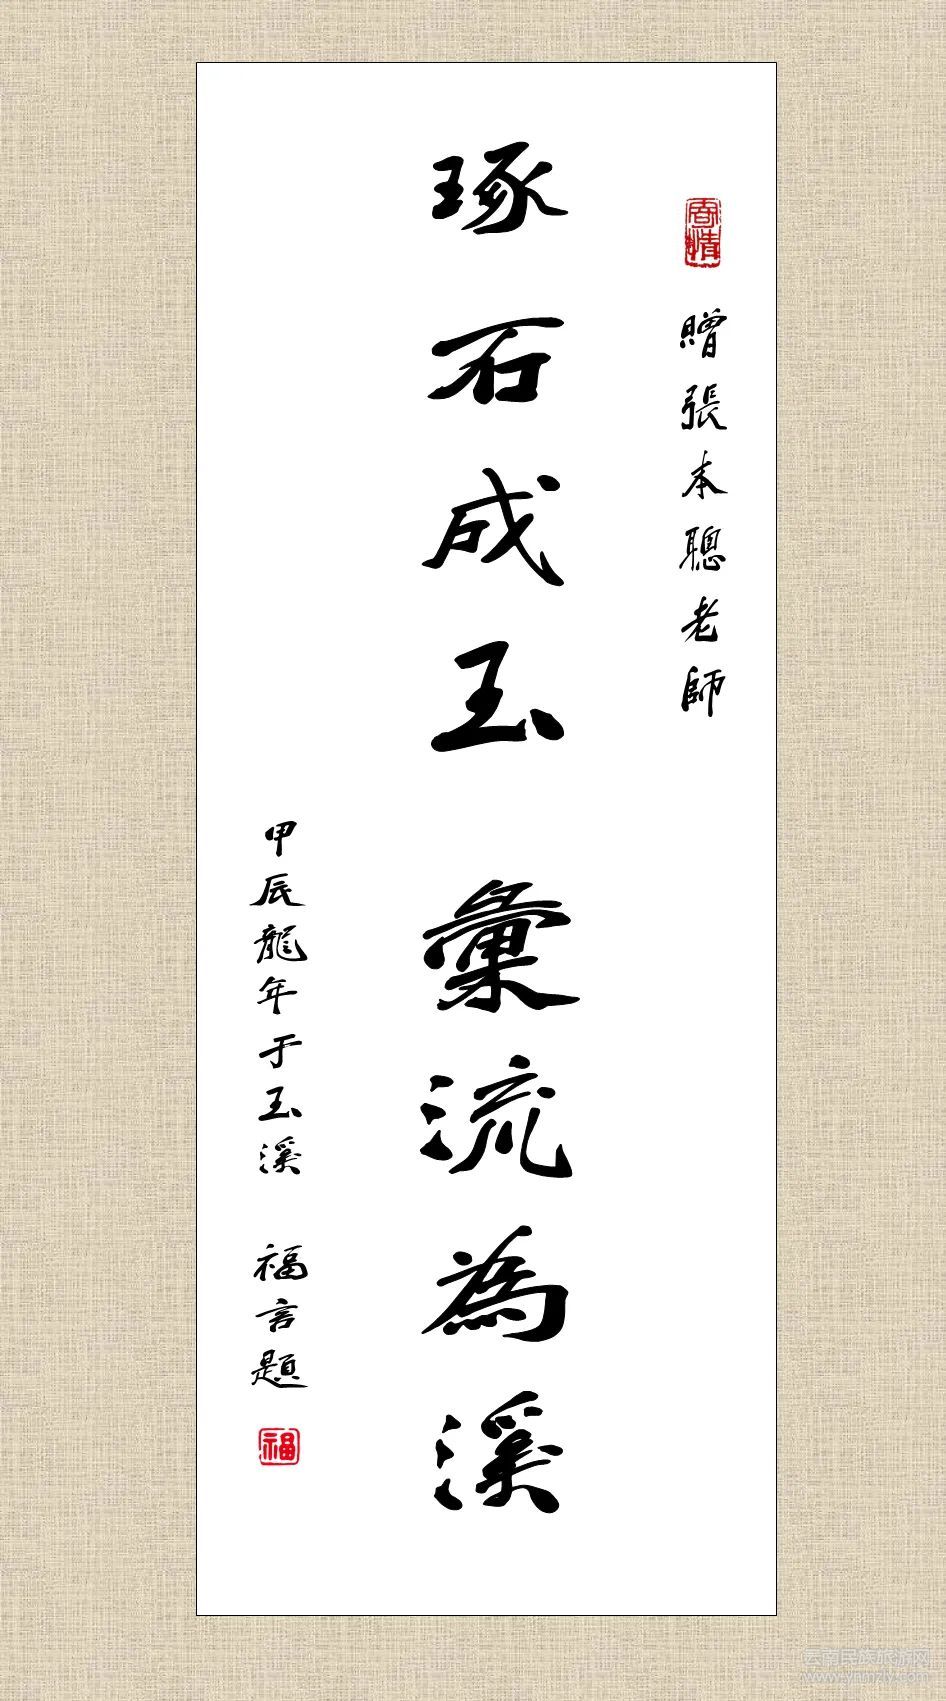 贈張本聰老師
琢石成玉 彙流為溪
甲辰龍年于玉溪 福言題
福
云南民族旅游网
www.ynmzly.com